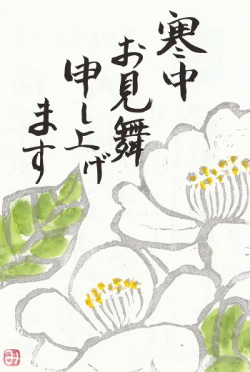 寒中
お見舞
申し上げ
ます
み